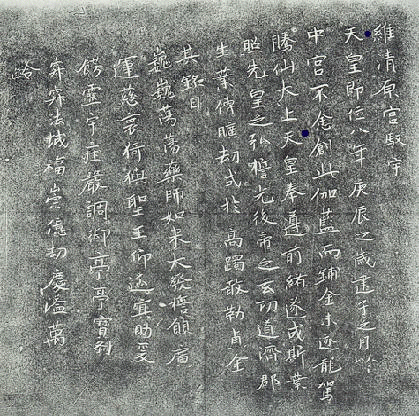 維清原宮馭宇
天皇即位八年庚辰之歲建子之月以
中宮不悆創此伽藍而鋪金未遂龍駕
騰仙大上天皇奉遵前緒遂成斯業
照先皇之弘誓光後帝之玄功道濟郡
生業傳曠劫式於高躅敢勒貞金
其銘曰
巍巍蕩蕩藥師如来大發誓願廣
運慈哀猗㺞聖王仰延冥助爰
餝靈宇莊嚴調御亭亭寶刹
寂寂法城福崇億劫慶溢萬
齡